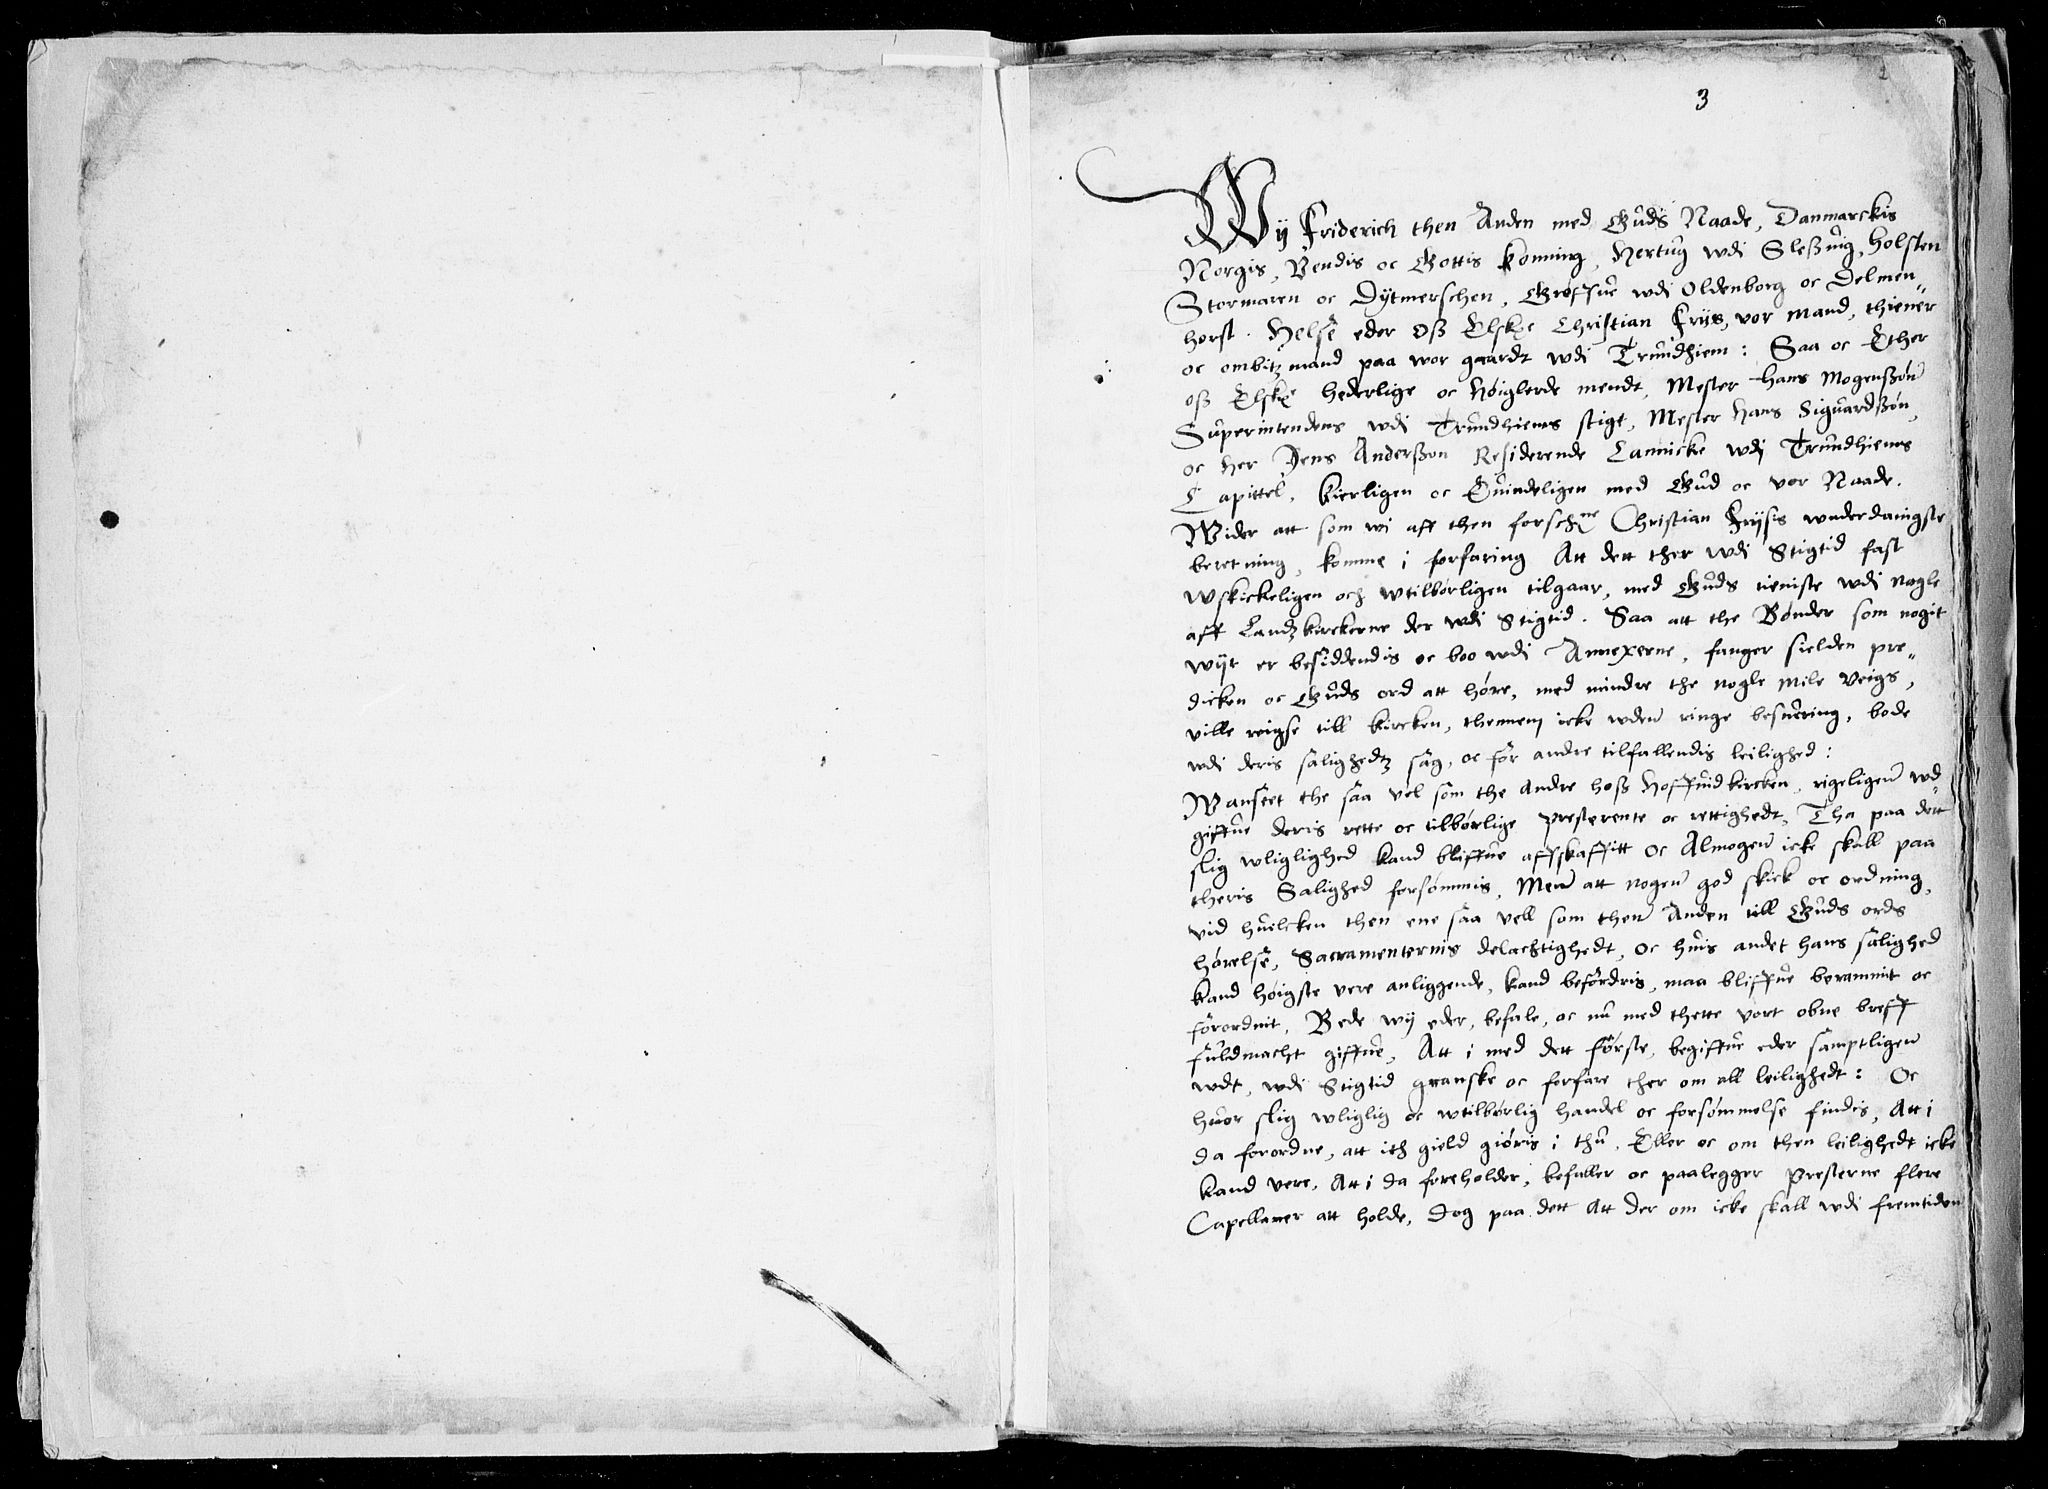 2
3
Wij Friderich then Anden med Guds Naade, Danmarckis
Norgis, Vendis oc Gottis Konning, Hertug wdi Sleßuig, Holsten
Stormaren oc Dytmerschen, Greffue wdi Oldenborg oc Delmen„
horst. Helse eder Oß Elskæ Christian Friis, vor mand, thiener
oc ombitzmand paa wor gaardt wdi Trundhiem: Saa oc Ether
oß Elskæ hederlige oc Høiglerde mendt, Mester Hans Mogenßøn
Superintendens wdi Trundhiems stigt, Mester Hans Siguardßøn,
oc Her Jens Anderßøn Residerende Cannicke wdi Trundhiems
Capittel, kierligen oc Euindeligen med Gud oc vor Naade.
Wider att som wi aff then forschne Christian Friisis wnderdanigste
beretning, komme i forfaring Att dett ther wdi Stigtid fast
wskickeligen och wtilbørligen tilgaar, med Guds tieniste wdi nogle
aff Landzkirckerne der wdi Stigtid. Saa att the Bønder som nogit
wijt er besiddendis oc boo wdi Annexerne, fanger sielden pre„
dicken oc Guds ord att høre, med mindre the nogle mile Veigs,
ville reigse till kircken, thennem icke wden ringe besuering, bode
wdi deris salighedtz sag, oc for andre tilfallendis leilighed:
Wanseet the saa vel som the andre hoß Hoffuidkircken, rigeligen wd
giffue deris rette oc tilbørlige Presterente oc rettighedt, Tha paa dett
slig wliglighed kand bliffue affskaffitt Oc Almogen icke skall paa
theris Salighed forsømmis, Men att nogen god skick oc ordning,
vid huilcken then ene saa vell som then Anden till Guds ords
hørelse, Sacramenternis delachtighedt, Oc huis andet hans salighed
kand høigste vere anliggende, kand befordris, maa bliffue berammit oc
forordnit, Bede wij eder, befale, oc nu med thette vort obne breff
fuldmacht giffue, Att i med dett første, begiffue eder samptligen
wdt, wdi Stigtid granske oc forfare ther om all leilighedt: Oc
huor slig wliglig oc wtilbørlig handel oc forsømmelse findis, Att i
da forordne, att ith gield giøris i thu, Eller oc om then leilighedt icke
kand vere, Att i da foreholder, befaller oc paalegger Presterne flere
Capellaner att holde, Dog paa dett Att der om icke skall wdi fremtiden